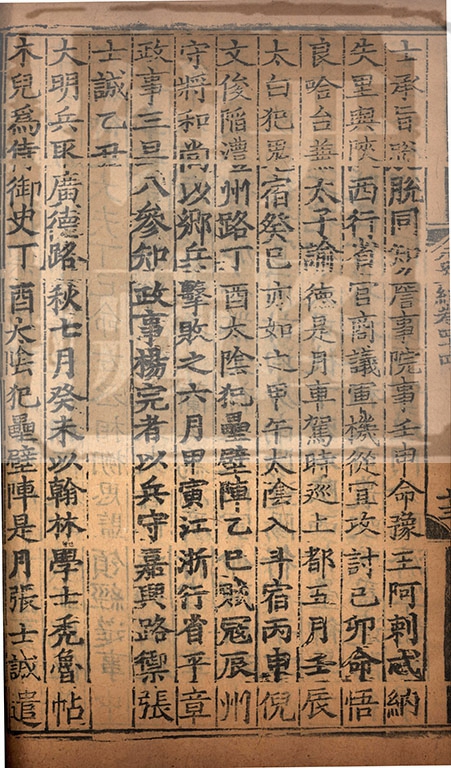 紀卷四十四
士承旨脫同知詹事院事壬申命豫王阿剌忒納
失里與陝西行省官商議軍機從宜攻討己卯命悟
良哈台兼太子諭德是月車駕時巡上都五月壬辰
太白犯鬼宿癸巳亦如之甲午太陰入斗宿丙申倪
文俊陷澧州路丁酉太陰犯壘壁陣乙巳賊冦辰州
守將和尚以鄉兵擊敗之六月甲寅江浙行省平章
政事三旦八參知政事楊完者以兵守嘉興路禦張
士誠乙丑
大明兵取廣德路秋七月癸未以翰林學士禿魯帖
木兒為侍御史丁酉太陰犯壘壁陣是月張士誠遣